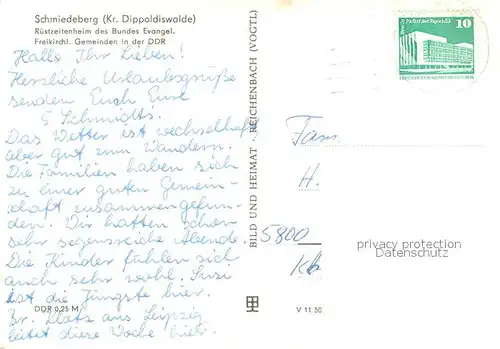 Schmiedeberg (Kr. Dippoldiswalde)
Rüstzeitenheim des Bundes Evangel.
Freikirchl. Gemeinden in der DDR
Hallo Ihr Lieben!
Herzliche Urlaubsgrüße
senden Euch Eure
5 Schmidtts.
Das Wetter ist wechselhaft
aber gut zum Wandern.
Die Familien haben sich
zu einer guten Gemein-
schaft zusammengefun-
den. Wir hatten schon
sehr segensreiche Abende.
Die Kinder fühlen sich
auch sehr wohl. Susi
ist die Jüngste hier.
Br. Klatz aus Leipzig
leitet diese Woche hier.
DDR 0,25 M
BILD UND HEIMAT · REICHENBACH (VOGTL)
V 11 50
Berlin Palast der Republik
10
DEUTSCHE DEMOKRATISCHE REPUBLIK
Fam.
H.
5800
privacy protection
Datenschutz